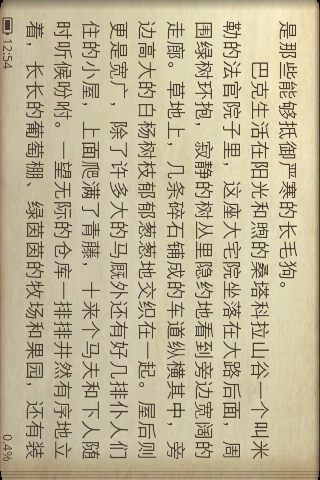 是那些能够抵御严寒的长毛狗。
巴克生活在阳光和煦的桑塔科拉山谷一个叫米
勒的法官院子里，这座大宅院坐落在大路后面，周
围绿树环抱，寂静的树丛里隐约地看到旁边宽阔的
走廊。草地上，几条碎石铺成的车道纵横其中，旁
边高大的白杨树枝郁郁葱葱地交织在一起。屋后则
更是宽广，除了许多大的马厩外还有好几排仆人们
住的小屋，上面爬满了青藤，十来个马夫和下人随
时听候吩咐。一望无际的仓库一排排井然有序地立
着，长长的葡萄棚、绿茵茵的牧场和果园，还有装
12:54
0.4%